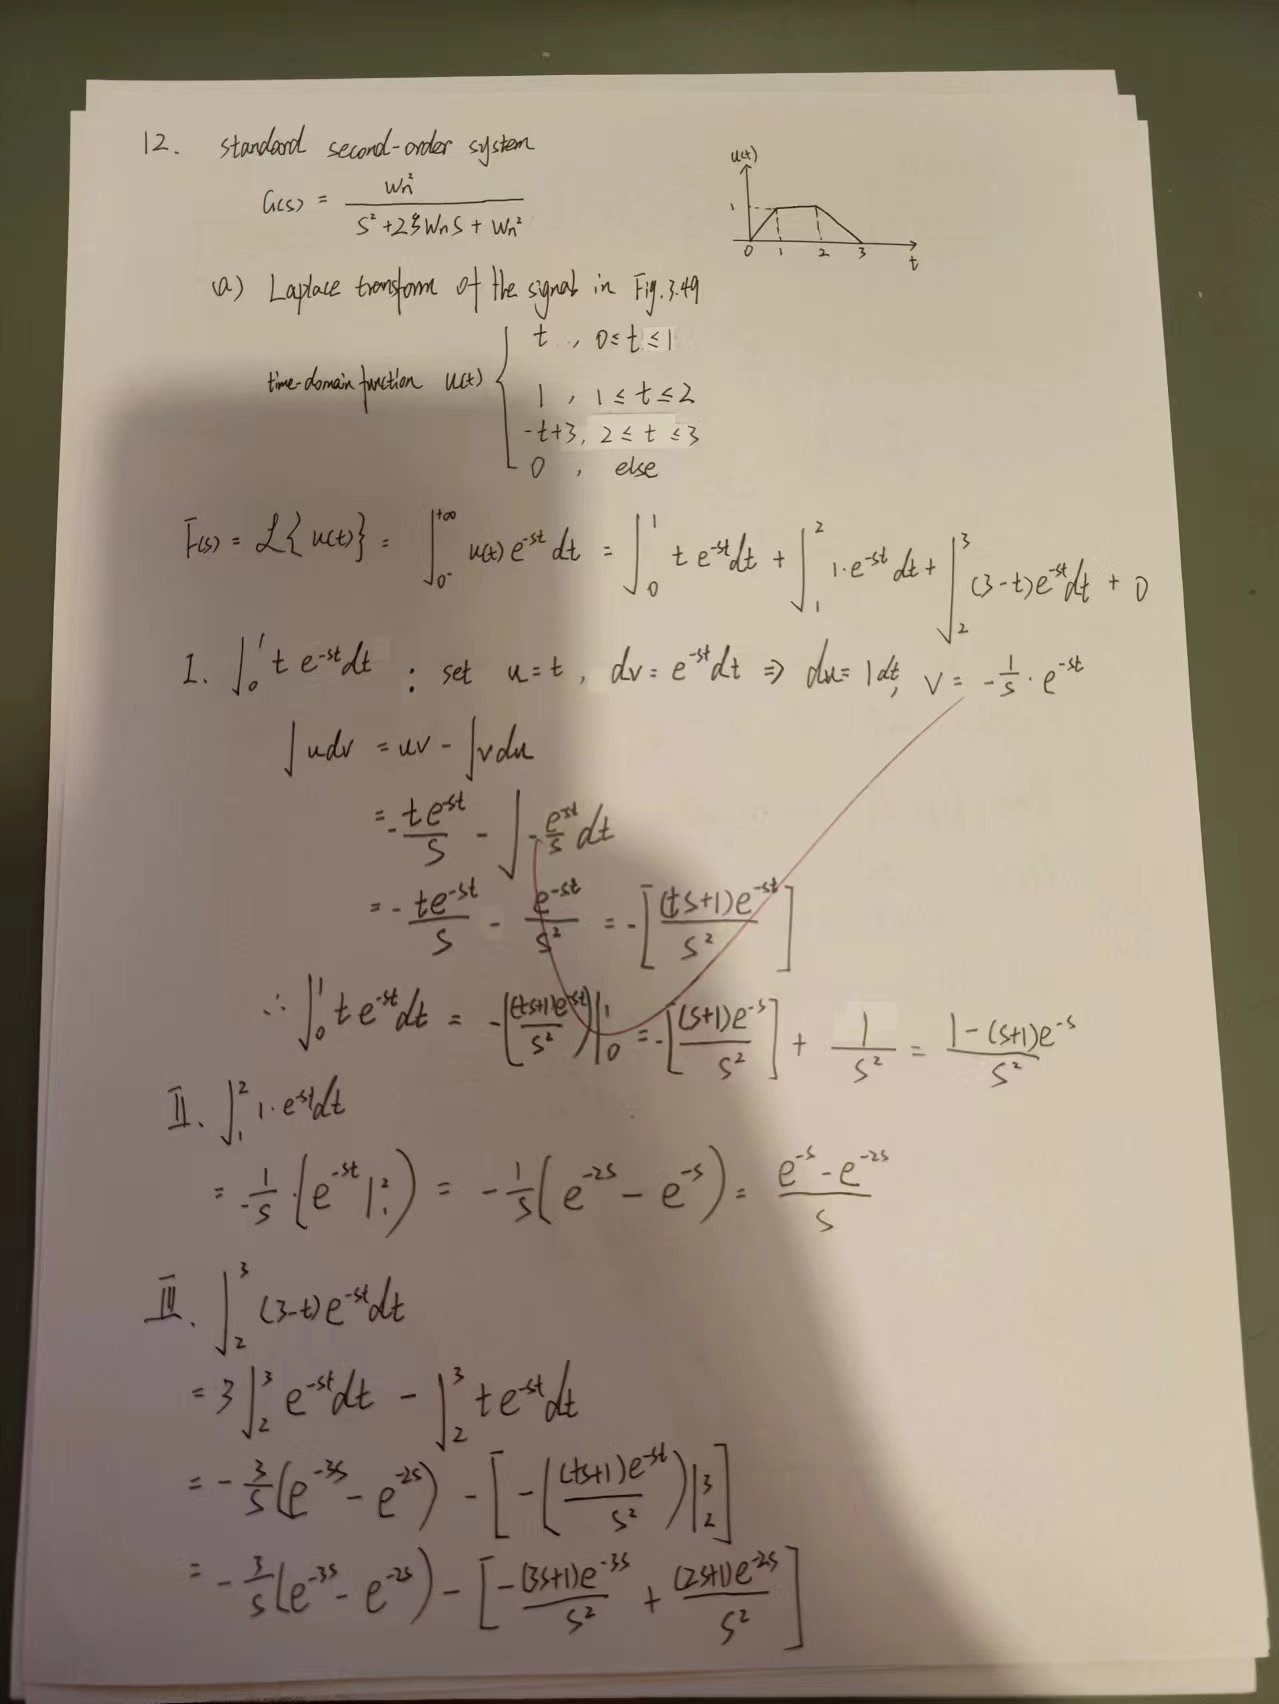 12. standard second-order system
G(s) = Wn² / (S² + 2ξWnS + Wn²)
u(t)
1
0 1 2 3
t
a) Laplace transform of the signal in Fig.3.49
time-domain function u(t) { t , 0 ≤ t ≤ 1
1 , 1 ≤ t ≤ 2
-t+3, 2 ≤ t ≤ 3
0 , else
F(s) = ℒ{u(t)} = ∫₀₋^{+∞} u(t) e^{-st} dt = ∫₀^1 t e^{-st} dt + ∫₁^2 1·e^{-st} dt + ∫₂^3 (3-t)e^{-st} dt + 0
I. ∫₀^1 t e^{-st} dt : set u = t , dv = e^{-st} dt ⇒ du = 1 dt, v = -1/s · e^{-st}
∫ u dv = uv - ∫ v du
= -te^{-st}/s - ∫ -e^{-st}/s dt
= -te^{-st}/s - e^{-st}/s² = -[(ts+1)e^{-st}/s²]
∴ ∫₀^1 t e^{-st} dt = -((ts+1)e^{-st}/s²)|₀^1 = -[(s+1)e^{-s}/s²] + 1/s² = (1-(s+1)e^{-s})/s²
II. ∫₁^2 1·e^{-st} dt
= -1/s · (e^{-st}|₁^2) = -1/s (e^{-2s} - e^{-s}) = (e^{-s} - e^{-2s})/s
III. ∫₂^3 (3-t)e^{-st} dt
= 3∫₂^3 e^{-st} dt - ∫₂^3 t e^{-st} dt
= -3/s (e^{-3s} - e^{-2s}) - [-((ts+1)e^{-st}/s²)|₂^3]
= -3/s (e^{-3s} - e^{-2s}) - [-(3s+1)e^{-3s}/s² + (2s+1)e^{-2s}/s²]